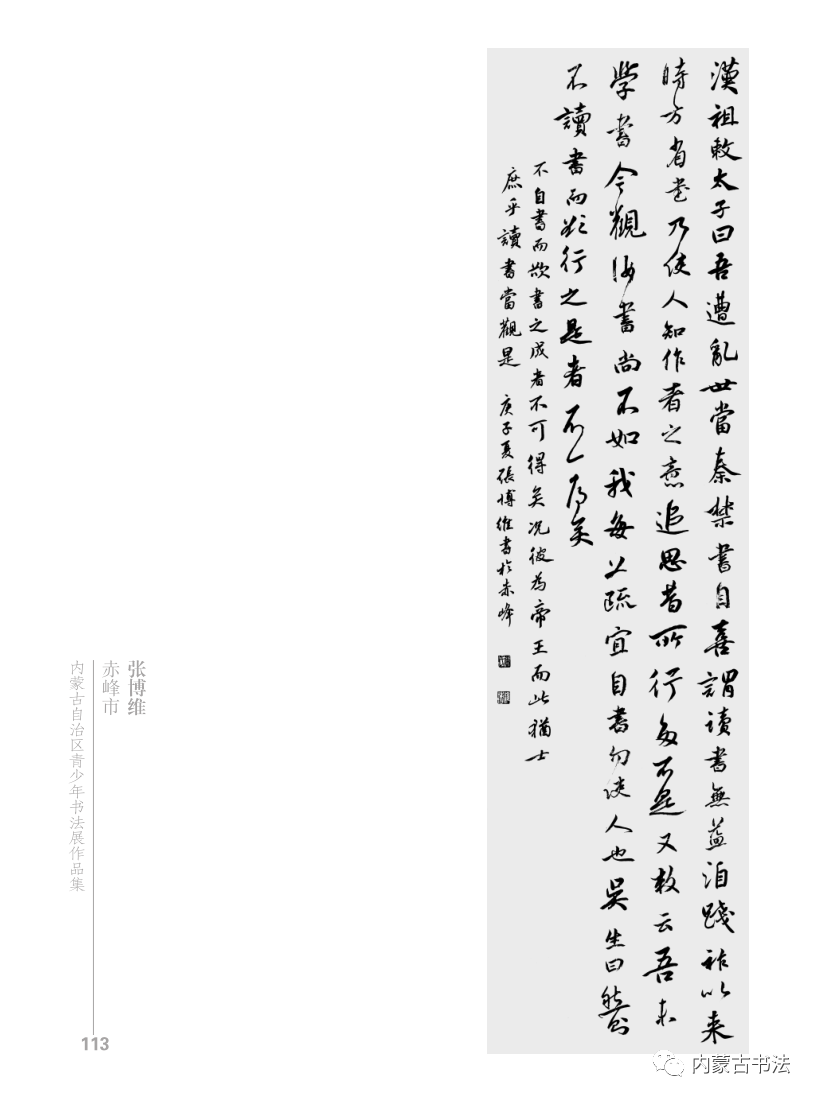 漢祖敕太子曰吾遭亂世當秦禁書自喜謂讀書無益洎踐祚以来
時方省書乃使人知作者之意追思昔所行多不是又敕云吾未
學書今觀汝書尚不如我每上疏宜自書勿使人也吳生曰然則
不讀書而欲行之是者不可得矣
不自書而欲書之成者不可得矣况彼為帝王而此猶士
庶乎讀書當觀是 庚子夏張博維書於赤峰
张博维
赤峰市
内蒙古自治区青少年书法展作品集
113
内蒙古书法